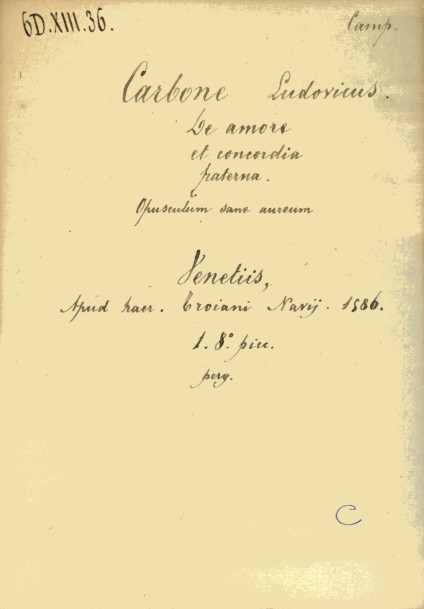 6D.XIII.36.
Camp.
Carbone Ludovicus.
De amore
et concordia
fraterna.
Opusculum sane aureum
Venetiis,
Apud haer. Troiani Navij. 1586.
1. 8.° picc.
perg.
C